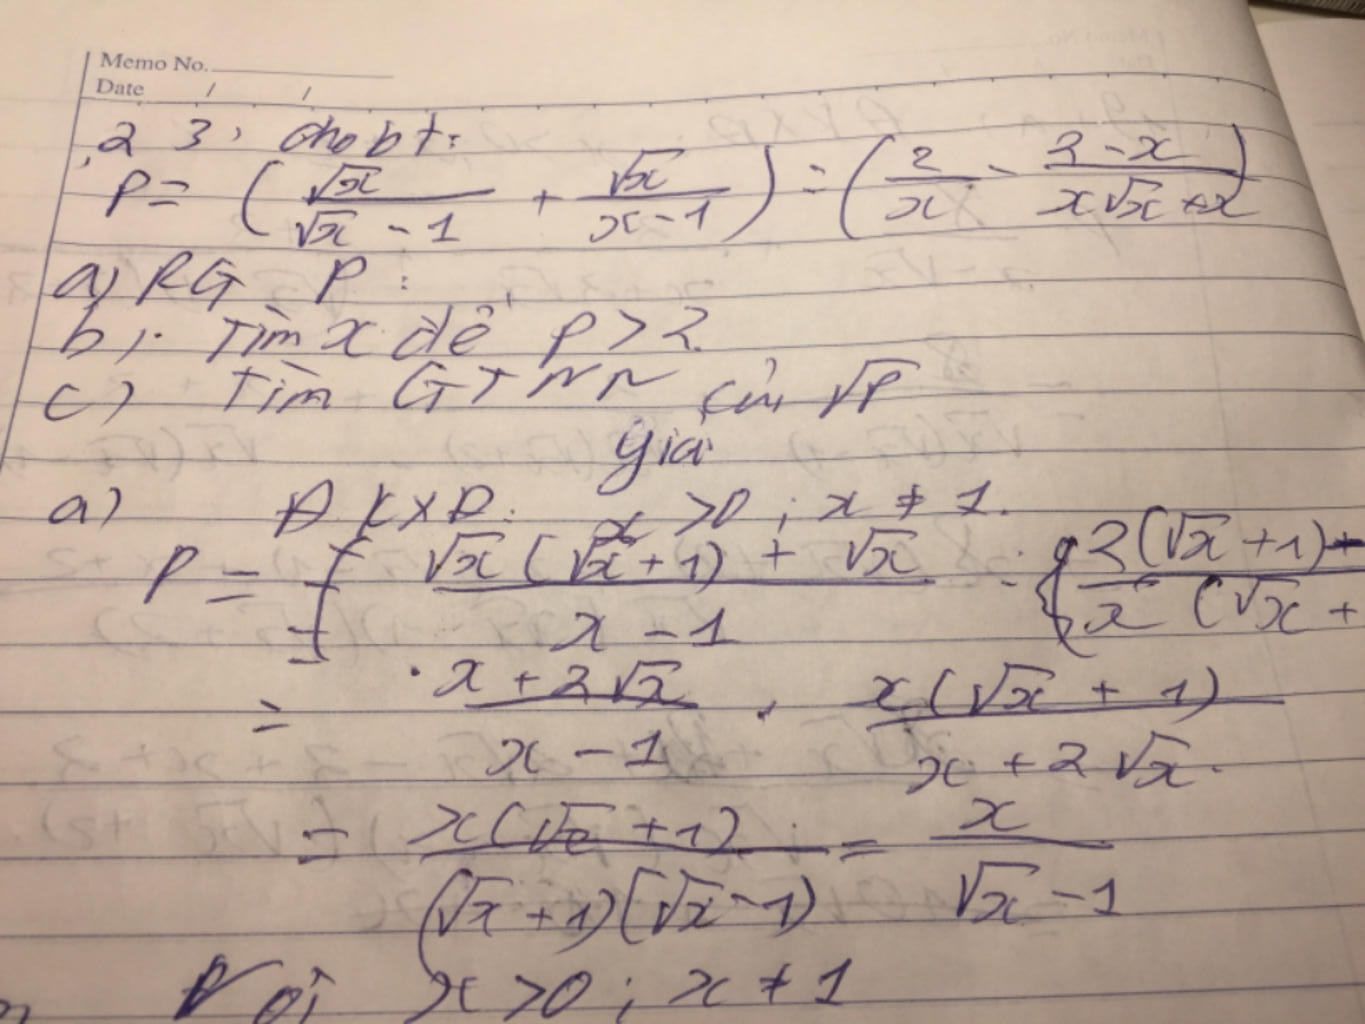 Memo No.
Date / /
2 3, cho bt:
P = ( √x / (√x - 1) + √x / (x - 1) ) : ( 2 / x - (2 - x) / (x√x + x) )
a) RG P :
b) . Tìm x để P > 2.
c) Tìm GTNN của √P
giải
a) ĐKXĐ: x > 0 ; x ≠ 1.
P = ( (√x (√x + 1) + √x) / (x - 1) ) : { (2(√x + 1) - / (x (√x +
= (x + 2√x) / (x - 1) . x(√x + 1) / (x + 2√x)
= x(√x + 1) / ((√x + 1)(√x - 1)) = x / (√x - 1)
Với x > 0 ; x ≠ 1